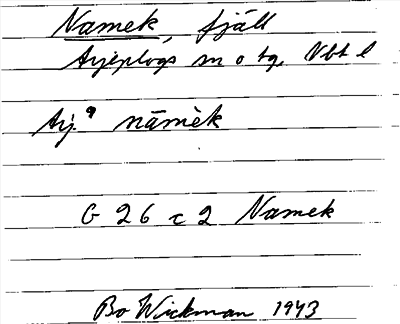 Namek, fjäll
Arjeplogs sn o tg, Vbt l
Arj. 9 nāmèk
G 26 c 2 Namek
Bo Wickman 1943